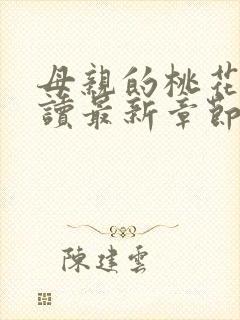 母親的桃花
讀最新章節
陳建雲